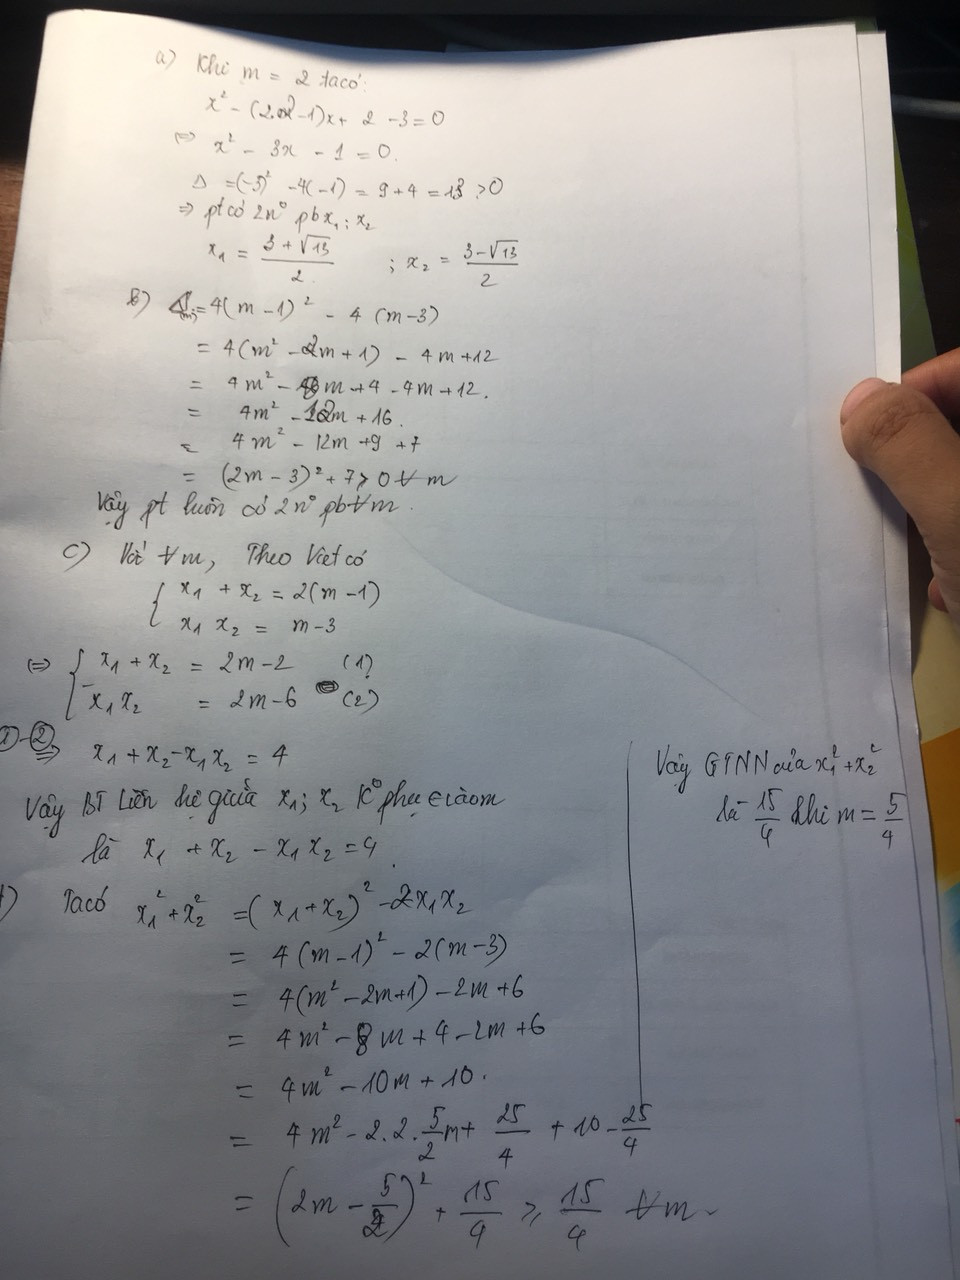 a) Khi m = 2 ta có:
x² - (2.2-1)x + 2 - 3 = 0
⇔ x² - 3x - 1 = 0.
Δ = (-3)² - 4(-1) = 9 + 4 = 13 > 0
⇒ pt có 2 n⁰ pb x₁; x₂
x₁ = (3 + √13)/2 ; x₂ = (3 - √13)/2
b) Δ(m) = 4(m - 1)² - 4 (m - 3)
= 4(m² - 2m + 1) - 4m + 12
= 4m² - 8m + 4 - 4m + 12.
= 4m² - 12m + 16.
= 4m² - 12m + 9 + 7
= (2m - 3)² + 7 > 0 ∀ m
Vậy pt luôn có 2 n⁰ pb ∀ m.
c) Với ∀ m, Theo Viet có
{ x₁ + x₂ = 2(m - 1)
x₁ x₂ = m - 3
⇔ { x₁ + x₂ = 2m - 2 (1)
x₁ x₂ = 2m - 6 (2)
① - ② ⇒ x₁ + x₂ - x₁ x₂ = 4
Vậy BT Liên hệ giữa x₁; x₂ K⁰ phụ ∈ vào m
là x₁ + x₂ - x₁ x₂ = 4.
Ta có x₁² + x₂² = (x₁ + x₂)² - 2x₁x₂
= 4(m - 1)² - 2(m - 3)
= 4(m² - 2m + 1) - 2m + 6
= 4m² - 8m + 4 - 2m + 6
= 4m² - 10m + 10.
= 4m² - 2.2.5/2 m + 25/4 + 10 - 25/4
= (2m - 5/2)² + 15/4 ≥ 15/4 ∀ m
Vậy GTNN của x₁² + x₂²
là 15/4 khi m = 5/4